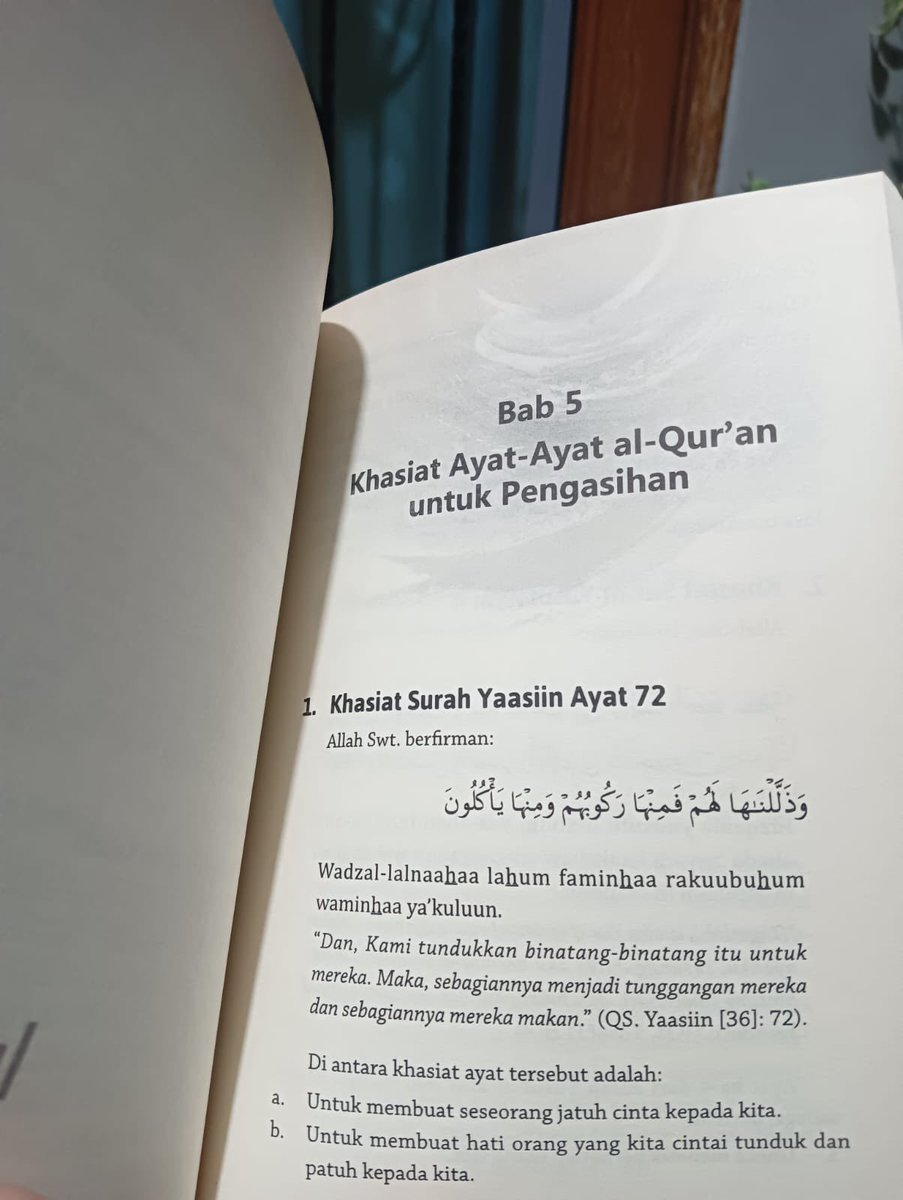 Bab 5
Khasiat Ayat-Ayat al-Qur’an
untuk Pengasihan
1. Khasiat Surah Yaasiin Ayat 72
Allah Swt. berfirman:
وَذَلَّلْنَـٰهَا لَهُمْ فَمِنْهَا رَكُوبُهُمْ وَمِنْهَا يَأْكُلُونَ
Wadzal-lalnaahaa lahum faminhaa rakuubuhum
waminhaa ya’kuluun.
“Dan, Kami tundukkan binatang-binatang itu untuk
mereka. Maka, sebagiannya menjadi tunggangan mereka
dan sebagiannya mereka makan.” (QS. Yaasiin [36]: 72).
Di antara khasiat ayat tersebut adalah:
a. Untuk membuat seseorang jatuh cinta kepada kita.
b. Untuk membuat hati orang yang kita cintai tunduk dan
patuh kepada kita.